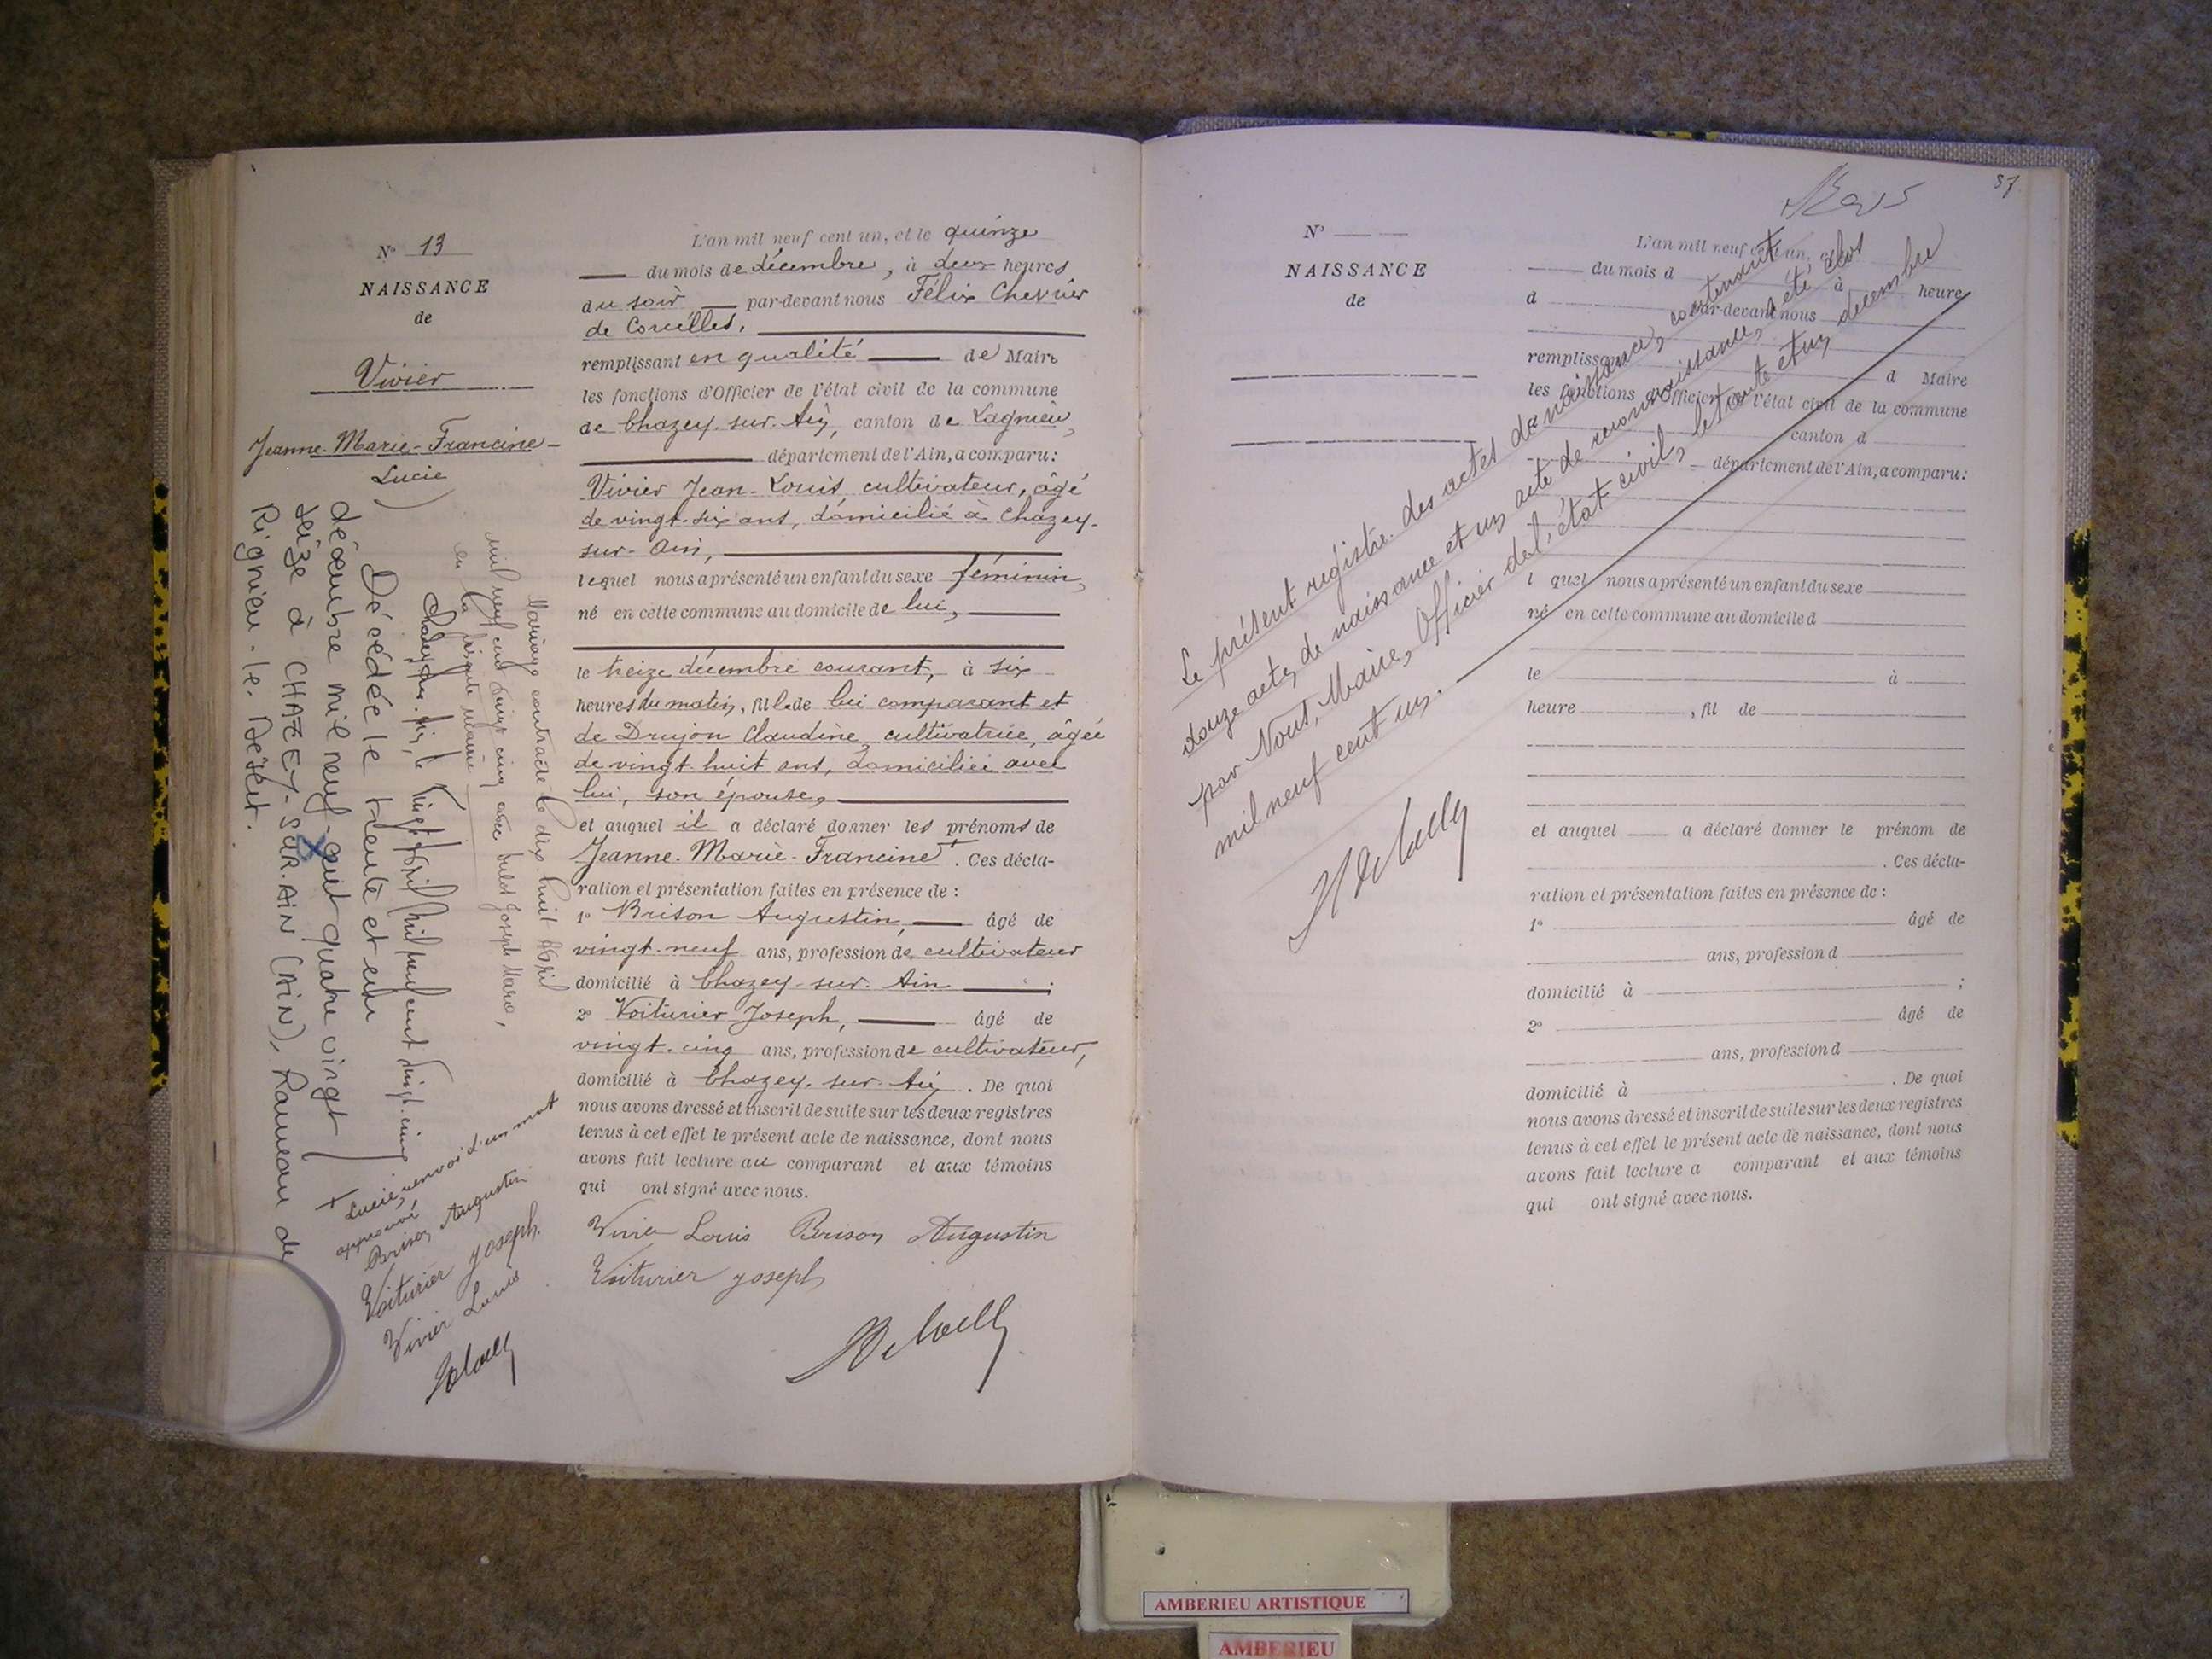 N° 13
NAISSANCE
de
Vivier
Jeanne-Marie-Francine-
Lucie
L'an mil neuf cent un, et le quinze
du mois de décembre, à deux heures
du soir par-devant nous Félix Chevrier
de Corcelles,
remplissant en qualité de Maire
les fonctions d'Officier de l'état civil de la commune
de Chazey-sur-Ain, canton de Lagnieu,
département de l'Ain, a comparu:
Vivier Jean-Louis, cultivateur, âgé
de vingt-six ans, domicilié à Chazey-
sur-Ain,
lequel nous a présenté un enfant du sexe féminin,
né en cette commune au domicile de lui,
le treize décembre courant, à six
heures du matin, fille de lui comparant et
de Drujon Claudine, cultivatrice, âgée
de vingt-huit ans, domiciliée avec
lui, son épouse,
et auquel il a déclaré donner les prénoms de
Jeanne-Marie-Francine +. Ces décla-
ration et présentation faites en présence de :
1° Brison Augustin, âgé de
vingt-neuf ans, profession de cultivateur
domicilié à Chazey-sur-Ain ;
2° Voiturier Joseph, âgé de
vingt-cinq ans, profession de cultivateur,
domicilié à Chazey-sur-Ain. De quoi
nous avons dressé et inscrit de suite sur les deux registres
tenus à cet effet le présent acte de naissance, dont nous
avons fait lecture au comparant et aux témoins
qui ont signé avec nous.
Vivier Louis Brison Augustin
Voiturier Joseph
Mariage contracté le dix huit Avril
mil neuf cent vingt cinq avec Joseph Marc,
en la mairie
Chazey-sur-Ain, le vingt Avril mil neuf cent vingt-cinq
Décédée le trente et un
décembre mil neuf cent quatre vingt
seize à CHAZEY-SUR-AIN (AIN), Hameau de
Rignieu-le-Désert.
+ Lucie, renvoi d'un mot
approuvé
Brison Augustin
Voiturier Joseph
Vivier Louis
37
N°
NAISSANCE
de
L'an mil neuf cent un, et le
du mois d à heure
d par-devant nous
remplissant d Maire
les fonctions d'Officier de l'état civil de la commune
canton d
département de l'Ain, a comparu:
l quel nous a présenté un enfant du sexe
né en cette commune au domicile d
le à
heure , fil de
et auquel a déclaré donner le prénom de
. Ces décla-
ration et présentation faites en présence de :
1° âgé de
ans, profession d
domicilié à ;
2° âgé de
ans, profession d
domicilié à . De quoi
nous avons dressé et inscrit de suite sur les deux registres
tenus à cet effet le présent acte de naissance, dont nous
avons fait lecture a comparant et aux témoins
qui ont signé avec nous.
Le présent registre des actes de naissance, contenant
douze actes de naissance et un acte de reconnaissance, a été clos
par Nous, Maire, Officier de l'état civil, le trente et un décembre
mil neuf cent un.
AMBERIEU ARTISTIQUE
AMBERIEU